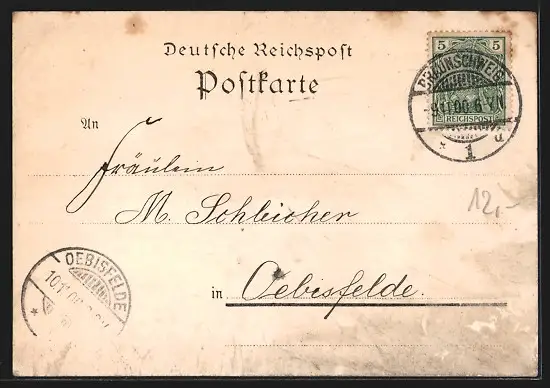 Deutsche Reichspost
Postkarte
5 5
REICHSPOST
BRAUNSCHWEIG
9.11.00.6-7N.
* 1 d
An
Fräulein
M. Schleicher
12,-
in Oebisfelde.
OEBISFELDE
10.11.00
*